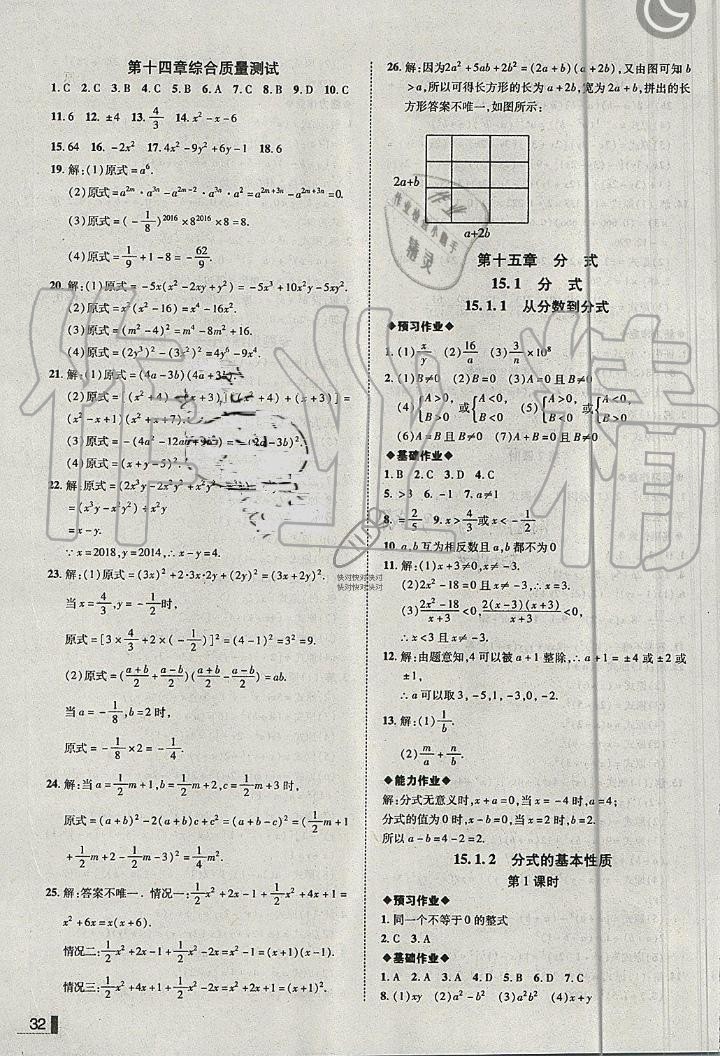 第十四章综合质量测试
1. C 2. C 3. B 4. C 5. B 6. C 7. B 8. A 9. D 10. C
11. 6 12. ±4 13. 4/3 14. x²-x-6
15. 64 16. -2x² 17. 4x²-9y²+6y-1 18. 6
19. 解:(1)原式=a⁶.
(2)原式=a²ᵐ·a³ⁿ-a²ᵐ⁻²·a³ⁿ⁺²=a²ᵐ⁺³ⁿ-a²ᵐ⁺³ⁿ=0.
(3)原式=(-1/8)²⁰¹⁶×8²⁰¹⁶×8=8.
(4)原式=1/9+1-8=-62/9.
20. 解:(1)原式=-5x(x²-2xy+y²)=-5x³+10x²y-5xy².
(2)原式=x²(x²-16)=x⁴-16x².
(3)原式=(m²-4)²=m⁴-8m²+16.
(4)原式=(2y³)²-(3x²)²=4y⁶-9x⁴.
21. 解:(1)原式=(4a-3b)(4a+3b).
(2)原式=
(x²-x+1)(x²+x+7).
(3)原式=-(4a²-12ab+9b²)=-(2a-3b)².
(4)原式=(x+y-5)².
22. 解:原式=
=(x³y-x²y²)÷x²y
=x-y.
∵x=2018,y=2014,∴x-y=4.
23. 解:(1)原式=(3x)²+2·3x·2y+(2y)²=(3x+2y)².
当x=4/3,y=-1/2时,
原式=[3×4/3+2×(-1/2)]²=(4-1)²=3²=9.
(2)原式=(a+b/2+a-b/2)(a+b/2-a-b/2)=ab.
当a=-1/8,b=2时,
原式=-1/8×2=-1/4.
24. 解:当a=1/2m+1,b=1/2m+2,c=1/2m+3时,
原式=(a+b)²-2(a+b)c+c²=(a+b-c)²=
25. 解:答案不唯一. 情况一:1/2x²+2x-1+1/2x²+4x+1=
x²+6x=x(x+6).
情况二:1/2x²+2x-1+1/2x²-2x=x²-1=(x+1)(x-1).
情况三:1/2x²+4x+1+1/2x²-2x=x²+2x+1=(x+1)².
32
26. 解:因为2a²+5ab+2b²=(2a+b)(a+2b),又由图可知b
>a,所以可得长方形的长为a+2b,宽为2a+b,拼出的长
方形答案不唯一,如图所示:
2a+b
a+2b
第十五章 分 式
15.1 分 式
15.1.1 从分数到分式
◆预习作业◆
1. (1)x/y (2)16/a (3)3/n×10⁸
2. (1)B≠0 (2)B=0 (3)A=0且B≠0
(4){A>0 B>0 或{A<0 B<0 (5){A>0 B<0 或{A<0 B>0
(6)A=B≠0 (7)A+B=0且B≠0
◆基础作业◆
1. B 2. C 3. D 4. C
5. >3 6. -1 7. a≠1
8. =2/5 9. x>4/3或x<-1/2
10. a,b互为相反数且都不为0
11. 解:(1)x+3≠0,∴x≠-3.
(2)2x²-18=0且x+3≠0,∴x=3.
(3)2x²-18/x+3<0,2(x-3)(x+3)/x+3<0,
∴x<3且x≠-3.
12. 解:由题意知,4可以被a+1整除,∴a+1=±4或±2或
±1,
∴a可以取3,-5,1,-3,0,-2.
13. 解:(1)1/b.
(2)m/a+n/b.
◆能力作业◆
解:分式无意义时,x+a=0,当x=-4时,a=4;
分式的值为0时,x-b=0,当x=2时,b=2.
所以a-b=4-2=2.
15.1.2 分式的基本性质
第1课时
◆预习作业◆
1. 同一个不等于0的整式
2. C 3. A
◆基础作业◆
1. A 2. A 3. A 4. D 5. D 6. D 7. C
8. (1)xy (2)xy (3)2a² (4)x+y
快对快对快对
快对快对快对
作业精